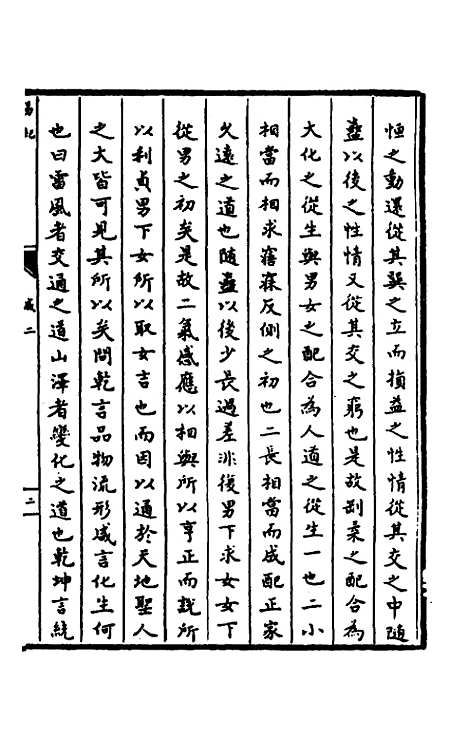 恒之動還從其巽之立而損益之性情從其交之中隨
蠱以後之性情又從其交之窮也是故剛柔之配合為
大化之從生與男女之配合為人道之從生一也二小
相當而相求寤寐反側之初也二長相當而成配正家
久遠之道也隨蠱以後少長過差非復男下求女女下
從男之初矣是故二氣感應以相與所以亨正而說所
以利貞男下女所以取女吉也而因以通於天地聖人
之大皆可見其所以矣問乾言品物流形咸言化生何
也曰雷風者交通之道山澤者變化之道也乾坤言統
咸二
二